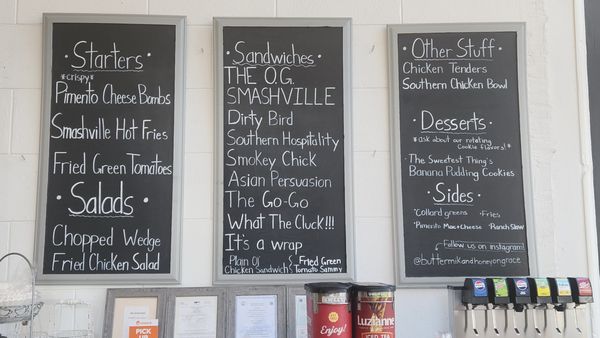 Starters
*crispy*
Pimento Cheese Bombs
Smashville Hot Fries
Fried Green Tomatoes
Salads
Chopped Wedge
Fried Chicken Salad
Sandwiches
THE O.G.
SMASHVILLE
Dirty Bird
Southern Hospitality
Smokey Chick
Asian Persuasion
The Go-Go
What The Cluck!!!
It's a wrap
Plain Ol' Chicken Sandwich
Fried Green Tomato Sammy
Other Stuff
Chicken Tenders
Southern Chicken Bowl
Desserts
*ask about our rotating
Cookie flavors!*
The Sweetest Thing's
Banana Pudding Cookies
Sides
•Collard greens •Fries
•Pimento Mac+Cheese •Ranch Slaw
Follow us on instagram!
@buttermilkandhoneyongreen
PICK UP
Enjoy!
Luzianne
ICED TEA